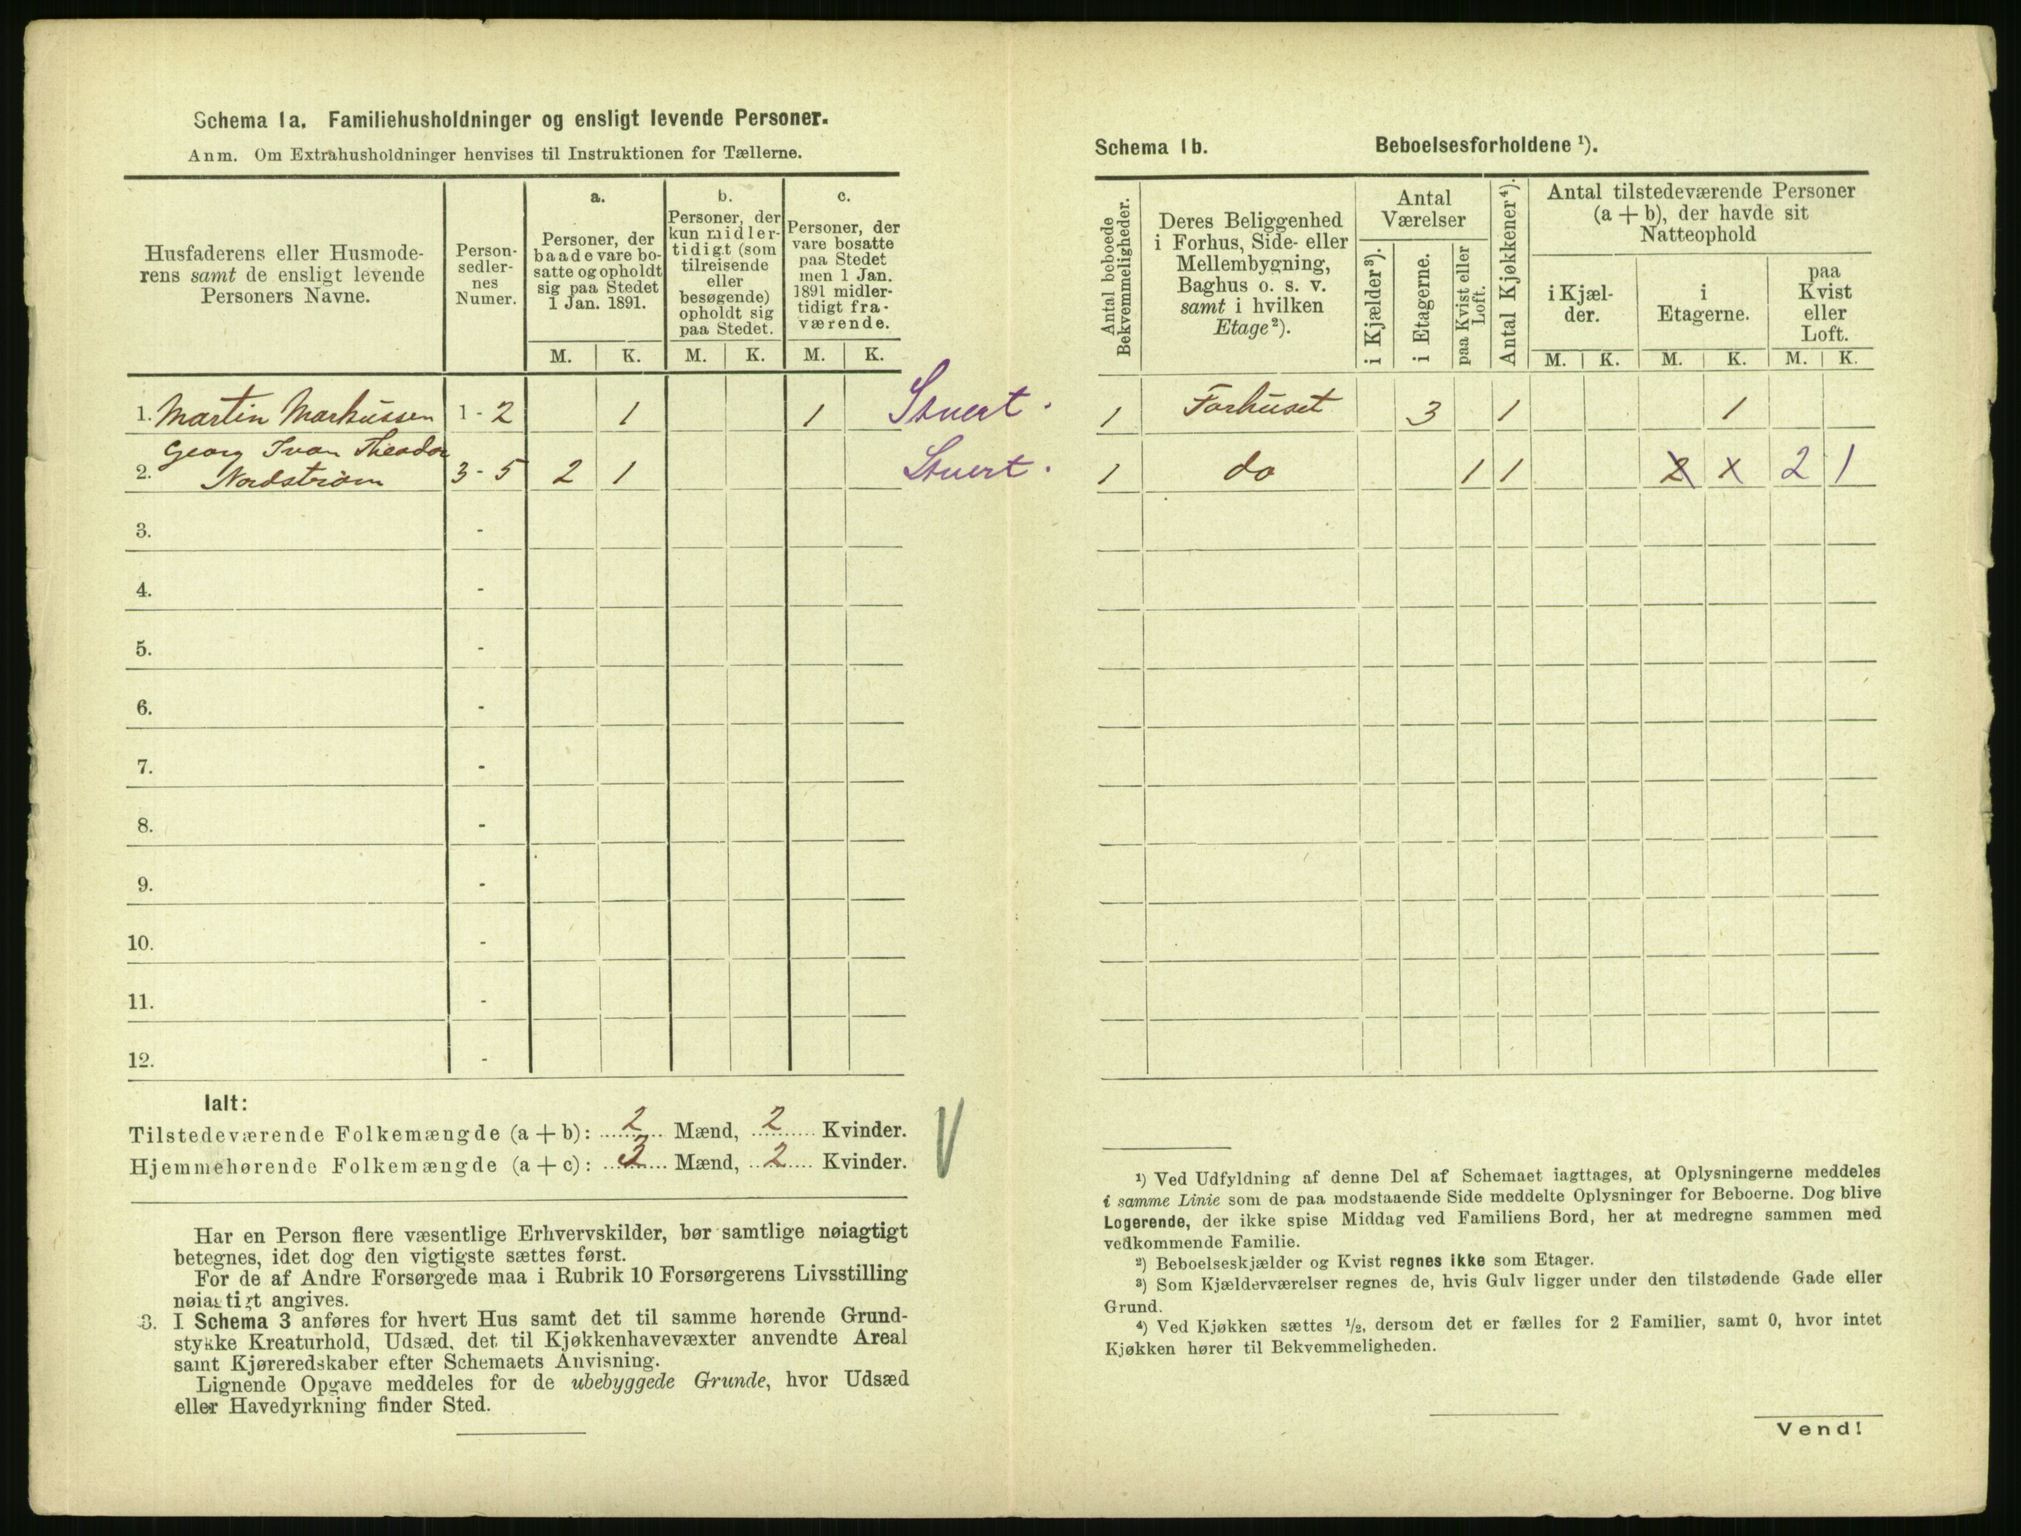 Schema 1a. Familiehusholdninger og ensligt levende Personer.
Anm. Om Extrahusholdninger henvises til Instruktionen for Tællerne.
Husfaderens eller Husmode-
rens samt de ensligt levende
Personers Navne.
Person-
sedler-
nes
Numer.
a.
Personer, der
baade vare bo-
satte og opholdt
sig paa Stedet
1 Jan. 1891.
b.
Personer, der
kun midler-
tidigt (som
tilreisende
eller
besøgende)
opholdt sig
paa Stedet.
c.
Personer, der
vare bosatte
paa Stedet
men 1 Jan.
1891 midler-
tidigt fra-
værende.
M. K. M. K. M. K.
1. Martin Markussen 1 - 2 1 1 Stuert.
Georg Ivan Theodor
2. Nordstrøm 3 - 5 2 1 Stuert.
3. -
4. -
5. -
6. -
7. -
8. -
9. -
10. -
11. -
12. -
Ialt:
Tilstedeværende Folkemængde (a + b): 2 Mænd, 2 Kvinder.
Hjemmehørende Folkemængde (a + c): 3 Mænd, 2 Kvinder.
Har en Person flere væsentlige Erhvervskilder, bør samtlige nøiagtigt
betegnes, idet dog den vigtigste sættes først.
For de af Andre Forsørgede maa i Rubrik 10 Forsørgerens Livsstilling
nøiagtigt angives.
3. I Schema 3 anføres for hvert Hus samt det til samme hørende Grund-
stykke Kreaturhold, Udsæd, det til Kjøkkenhavevæxter anvendte Areal
samt Kjøreredskaber efter Schemaets Anvisning.
Lignende Opgave meddeles for de ubebyggede Grunde, hvor Udsæd
eller Havedyrkning finder Sted.
Schema 1b. Beboelsesforholdene ¹).
Antal beboede
Bekvemmeligheder.
Deres Beliggenhed
i Forhus, Side- eller
Mellembygning,
Baghus o. s. v.
samt i hvilken
Etage²).
Antal
Værelser
i Kjælder³).
i Etagerne.
paa Kvist eller
Loft.
Antal Kjøkkener⁴).
Antal tilstedeværende Personer
(a + b), der havde sit
Natteophold
i Kjæl-
der.
i
Etagerne.
paa
Kvist
eller
Loft.
M. K. M. K. M. K.
1 Forhuset 3 1 1
1 do 1 1 2 x 2 1
¹) Ved Udfyldning af denne Del af Schemaet iagttages, at Oplysningerne meddeles
i samme Linie som de paa modstaaende Side meddelte Oplysninger for Beboerne. Dog blive
Logerende, der ikke spise Middag ved Familiens Bord, her at medregne sammen med
vedkommende Familie.
²) Beboelseskjælder og Kvist regnes ikke som Etager.
³) Som Kjælderværelser regnes de, hvis Gulv ligger under den tilstødende Gade eller
Grund.
⁴) Ved Kjøkken sættes ½, dersom det er fælles for 2 Familier, samt 0, hvor intet
Kjøkken hører til Bekvemmeligheden.
Vend!